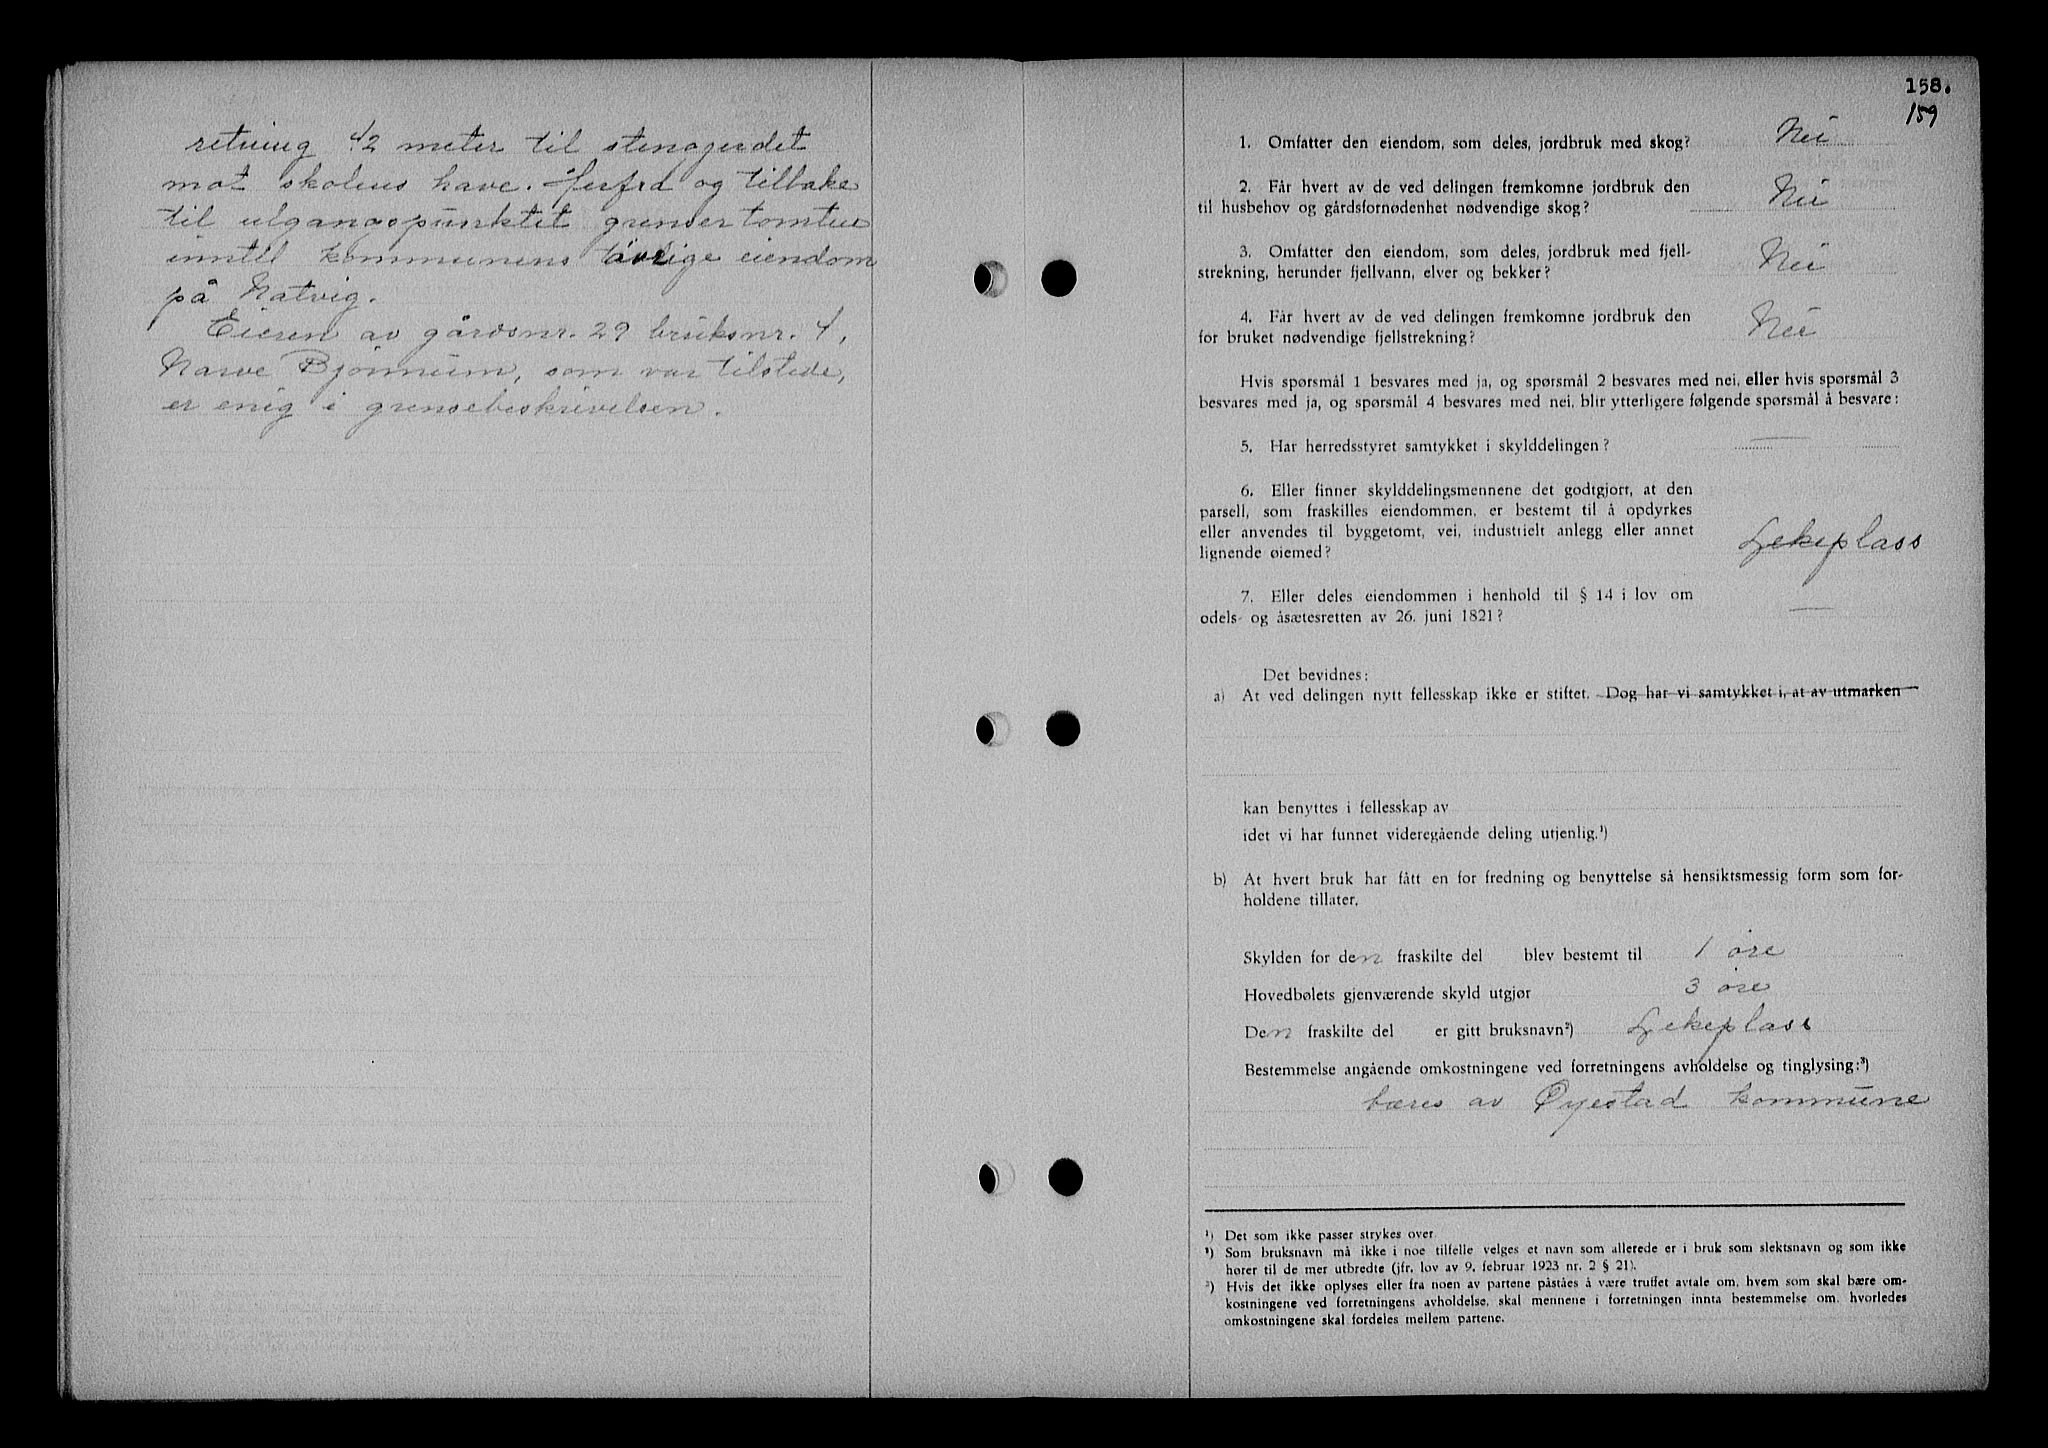 retning 42 meter til stengjerdet
mot skolens have. Herfrå og tilbake
til utgangspunktet grenser tomten
inntil kommunens øvrige eiendom
på Natvig.
Eieren av gårdsnr. 29 bruksnr. 4,
Narve Bjønnum, som var tilstede,
er enig i grensebeskrivelsen.
158.
159
1. Omfatter den eiendom, som deles, jordbruk med skog? Nei
2. Får hvert av de ved delingen fremkomne jordbruk den
til husbehov og gårdsfornødenhet nødvendige skog? Nei
3. Omfatter den eiendom, som deles, jordbruk med fjell-
strekning, herunder fjellvann, elver og bekker? Nei
4. Får hvert av de ved delingen fremkomne jordbruk den
for bruket nødvendige fjellstrekning? Nei
Hvis spørsmål 1 besvares med ja, og spørsmål 2 besvares med nei, eller hvis spørsmål 3
besvares med ja, og spørsmål 4 besvares med nei, blir ytterligere følgende spørsmål å besvare:
5. Har herredsstyret samtykket i skylddelingen? —
6. Eller finner skylddelingsmennene det godtgjort, at den
parsell, som fraskilles eiendommen, er bestemt til å opdyrkes
eller anvendes til byggetomt, vei, industrielt anlegg eller annet
lignende øiemed? Lekeplass
7. Eller deles eiendommen i henhold til § 14 i lov om
odels- og åsætesretten av 26. juni 1821? —
Det bevidnes:
a) At ved delingen nytt fellesskap ikke er stiftet. Dog har vi samtykket i, at av utmarken
kan benyttes i fellesskap av
idet vi har funnet videregående deling utjenlig.¹)
b) At hvert bruk har fått en for fredning og benyttelse så hensiktsmessig form som for-
holdene tillater.
Skylden for den fraskilte del blev bestemt til 1 øre
Hovedbølets gjenværende skyld utgjør 3 øre
Den fraskilte del er gitt bruksnavn²) Lekeplass
Bestemmelse angående omkostningene ved forretningens avholdelse og tinglysing:³)
bæres av Øyestad kommune
¹) Det som ikke passer strykes over.
²) Som bruksnavn må ikke i noe tilfelle velges et navn som allerede er i bruk som slektsnavn og som ikke
hører til de mer utbredte (jfr. lov av 9. februar 1923 nr. 2 § 21).
³) Hvis det ikke oplyses eller fra noen av partene påståes å være truffet avtale om, hvem som skal bære om-
kostningene ved forretningens avholdelse, skal mennene i forretningen innta bestemmelse om, hvorledes
omkostningene skal fordeles mellem partene.